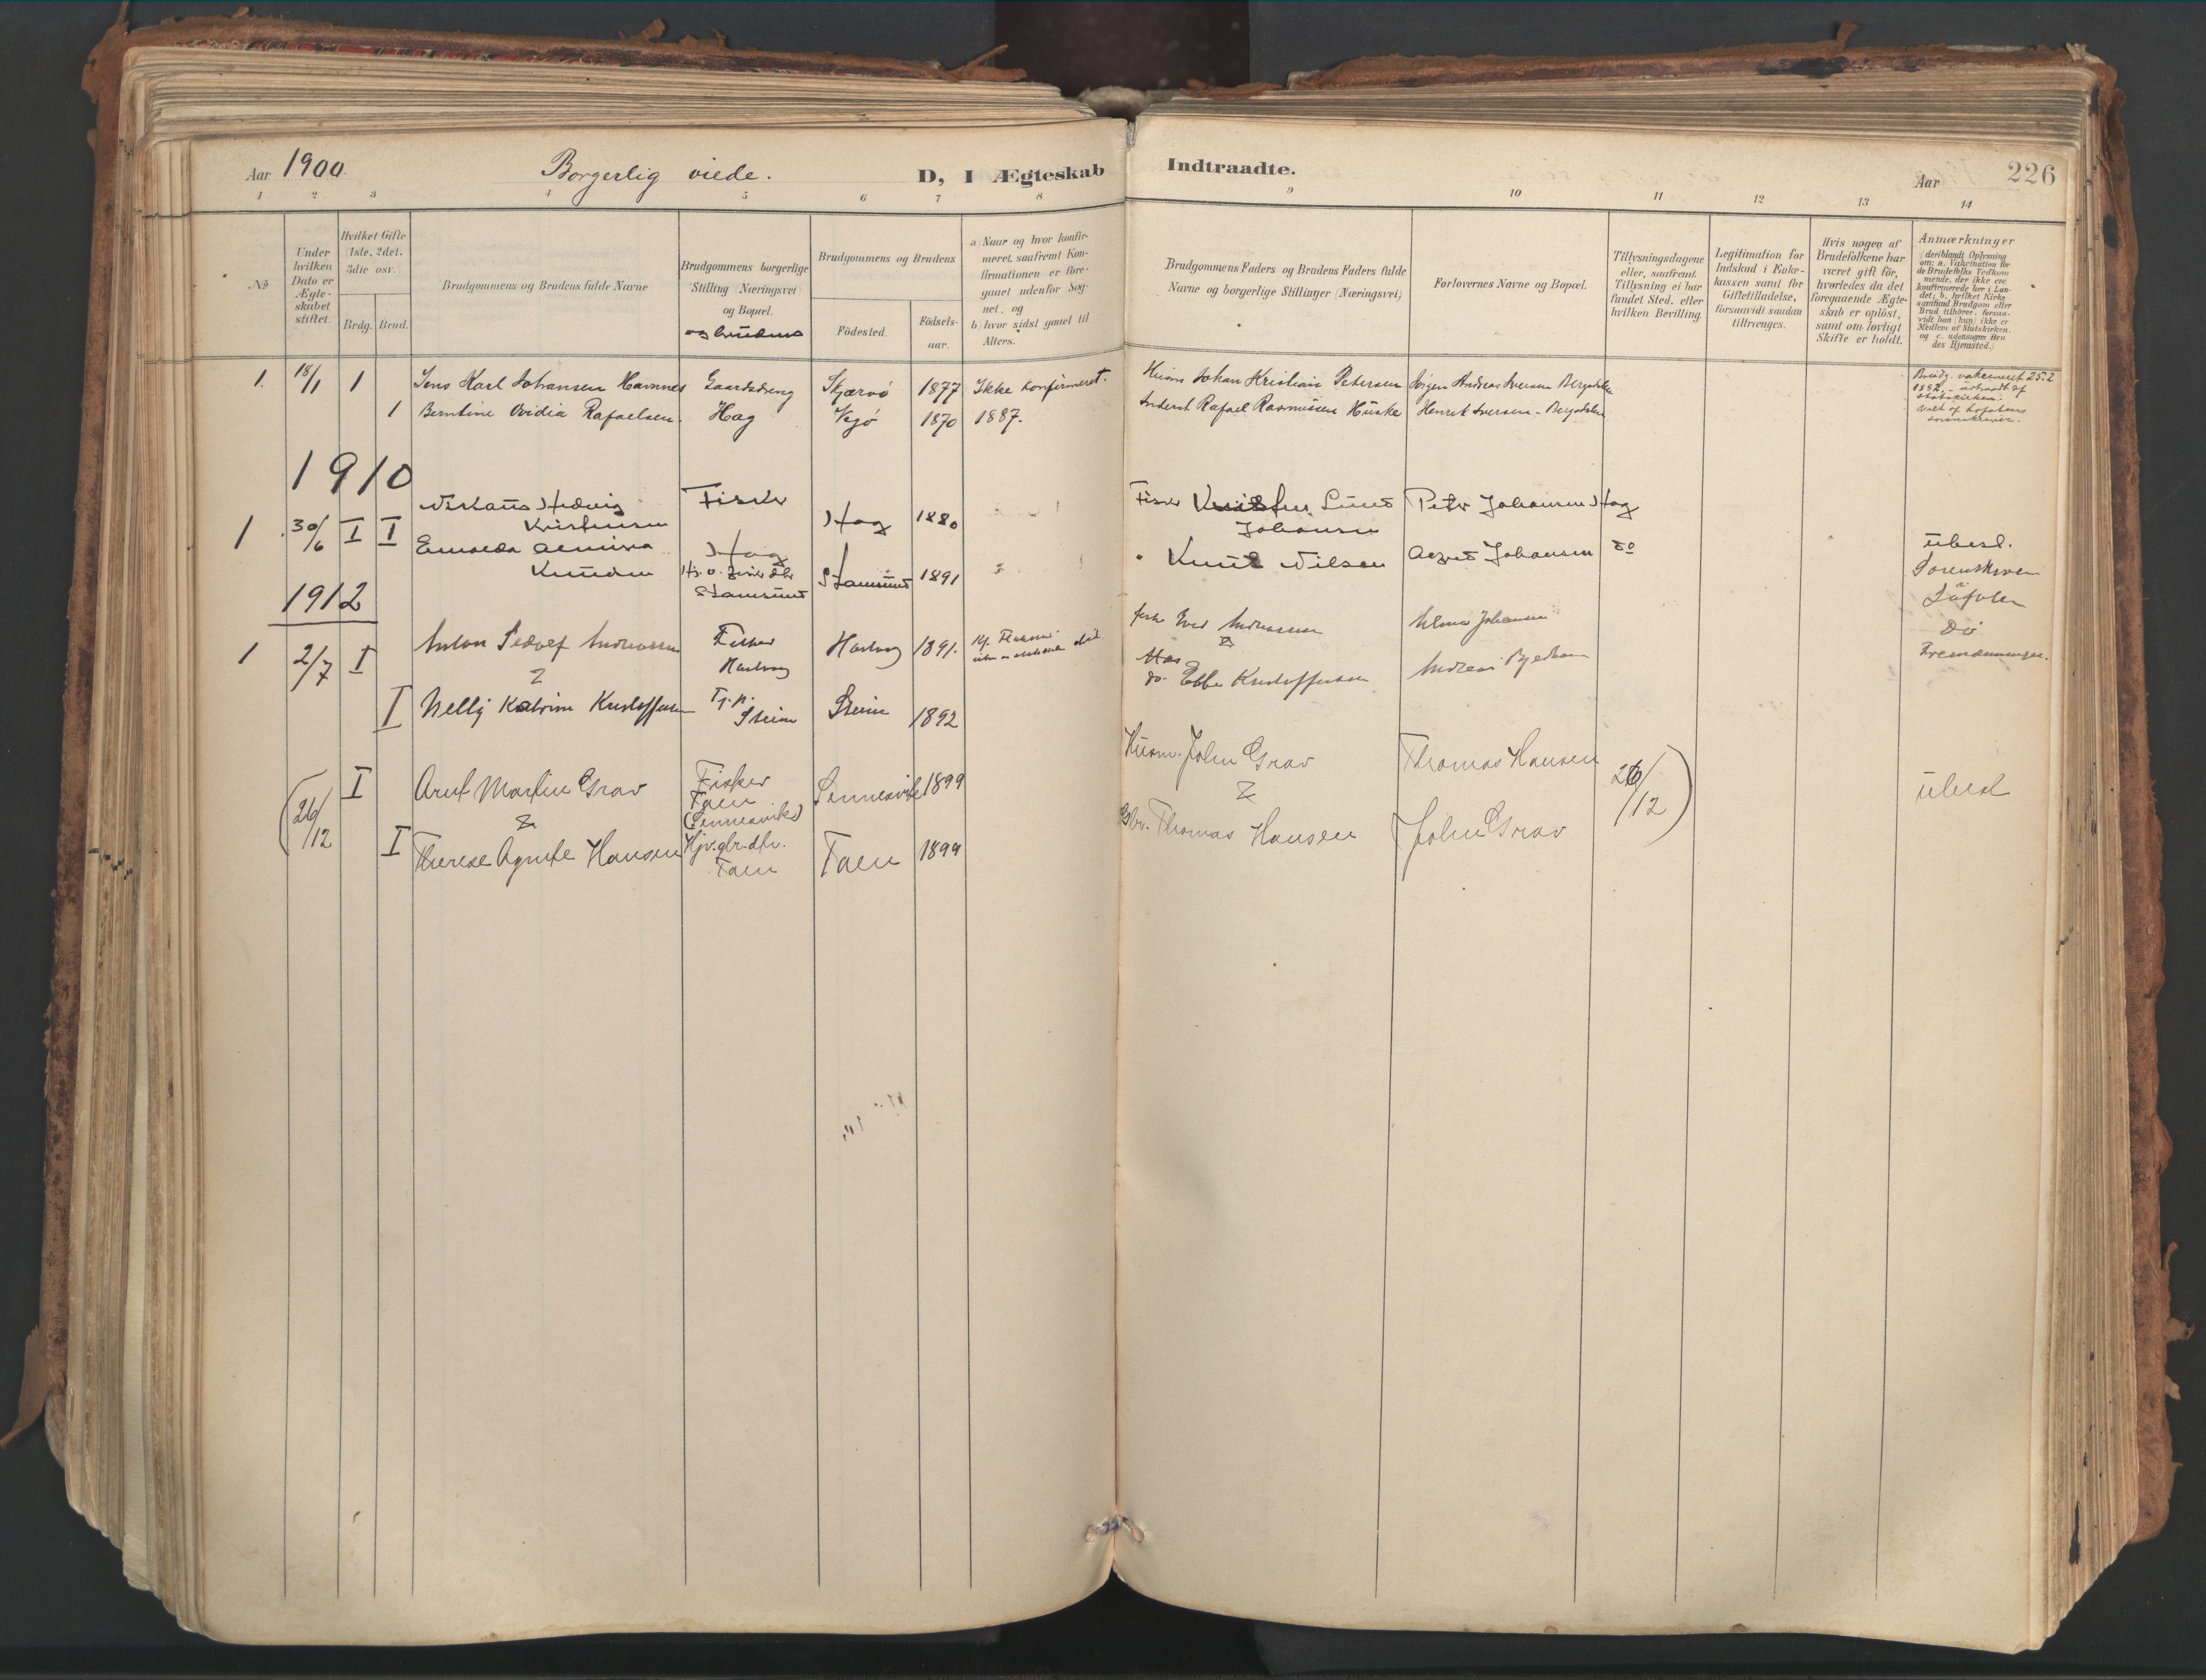 Aar 1900. Borgerlig viede. D, I Ægteskab Indtraadte. Aar 226
1 2 3 4 5 6 7 8 9 10 11 12 13 14
№
Under hvilken Dato er Ægteskabet stiftet.
Hvilket Gifte (1ste, 2det, 3die osv.
Brdg. Brud.
Brudgommens og Brudens fulde Navne
Brudgommens borgerlige Stilling (Næringsvei) og Bopæl.
og brudens
Brudgommens og Brudens
Födested.
Födselsaar.
a) Naar og hvor konfirmeret, saafremt Konfirmationen er foregaaet udenfor Sognet, og
b) hvor sidst gaaet til Alters.
Brudgommens Faders og Brudens Faders fulde Navne og borgerlige Stillinger (Næringsvei)
Forlovernes Navne og Bopæl.
Tillysningsdagene eller, saafremt Tillysning ei har fundet Sted, efter hvilken Bevilling.
Legitimation for Indskud i Enkekassen samt for Giftetilladelse, forsaavidt saadan tiltrænges.
Hvis nogen af Brudefolkene har været gift för, hvorledes da det foregaaende Ægteskab er oplöst, samt om lovligt Skifte er holdt.
Anmærkninger (deriblandt Oplysning om: a. Vakcination for de Brudefolks Vedkommende, der ikke ere konfirmerede her i Landet; b. hvilket Kirkesamfund Brudgom eller Brud tilhörer, forsaavidt han (hun) ikke er Medlem af Statskirken, og c. udensogns Brudes Hjemsted.)
1. 18/1 1 Jens Karl Johansen Havnnes Gaardsdreng Skjærvö 1877 Ikke konfirmeret. Husm. Johan Kristian Petersen Jörgen Andreas Iversen Bergsdalen
Brudg. vakcineret 25.2 1882, - udtraadt af statskirken. Viet af Lofotens sorenskriver.
1 Berntine Ovidia Rafaelsen. Hag Vegö 1870 1887. Inderst Rafael Rasmussen Henrik Iversen - Bergsdalen
1910
1 30/6 I I Hedvig Kristensen Fisker Hag 1880 Fisker Lund Johansen Petr Johansen Hag
Almira Knudsen Hag Stamsund Stamsund 1891 " Knut Nilsen Johansen do
ubesl. Sorenskriver i Lofoten
1912
1 2/7 I Anton Andreassen Fisker 1891. Andreassen Johansen
Do
&
I Nelly Katrine Kristoffersen Steine Steine 1892 do. Ebbe Kristoffersen Andreas
(26/12 I Arnt Martin Grav Fisker Taen (Sennesvik) Sennesvik 1899 Husm. John Grav Thomas Hansen 26/12) ubesl
&
I Therese Agnete Hansen Hjv. gbr. dtr. Taen Taen 1899 Gbr. Thomas Hansen John Grav